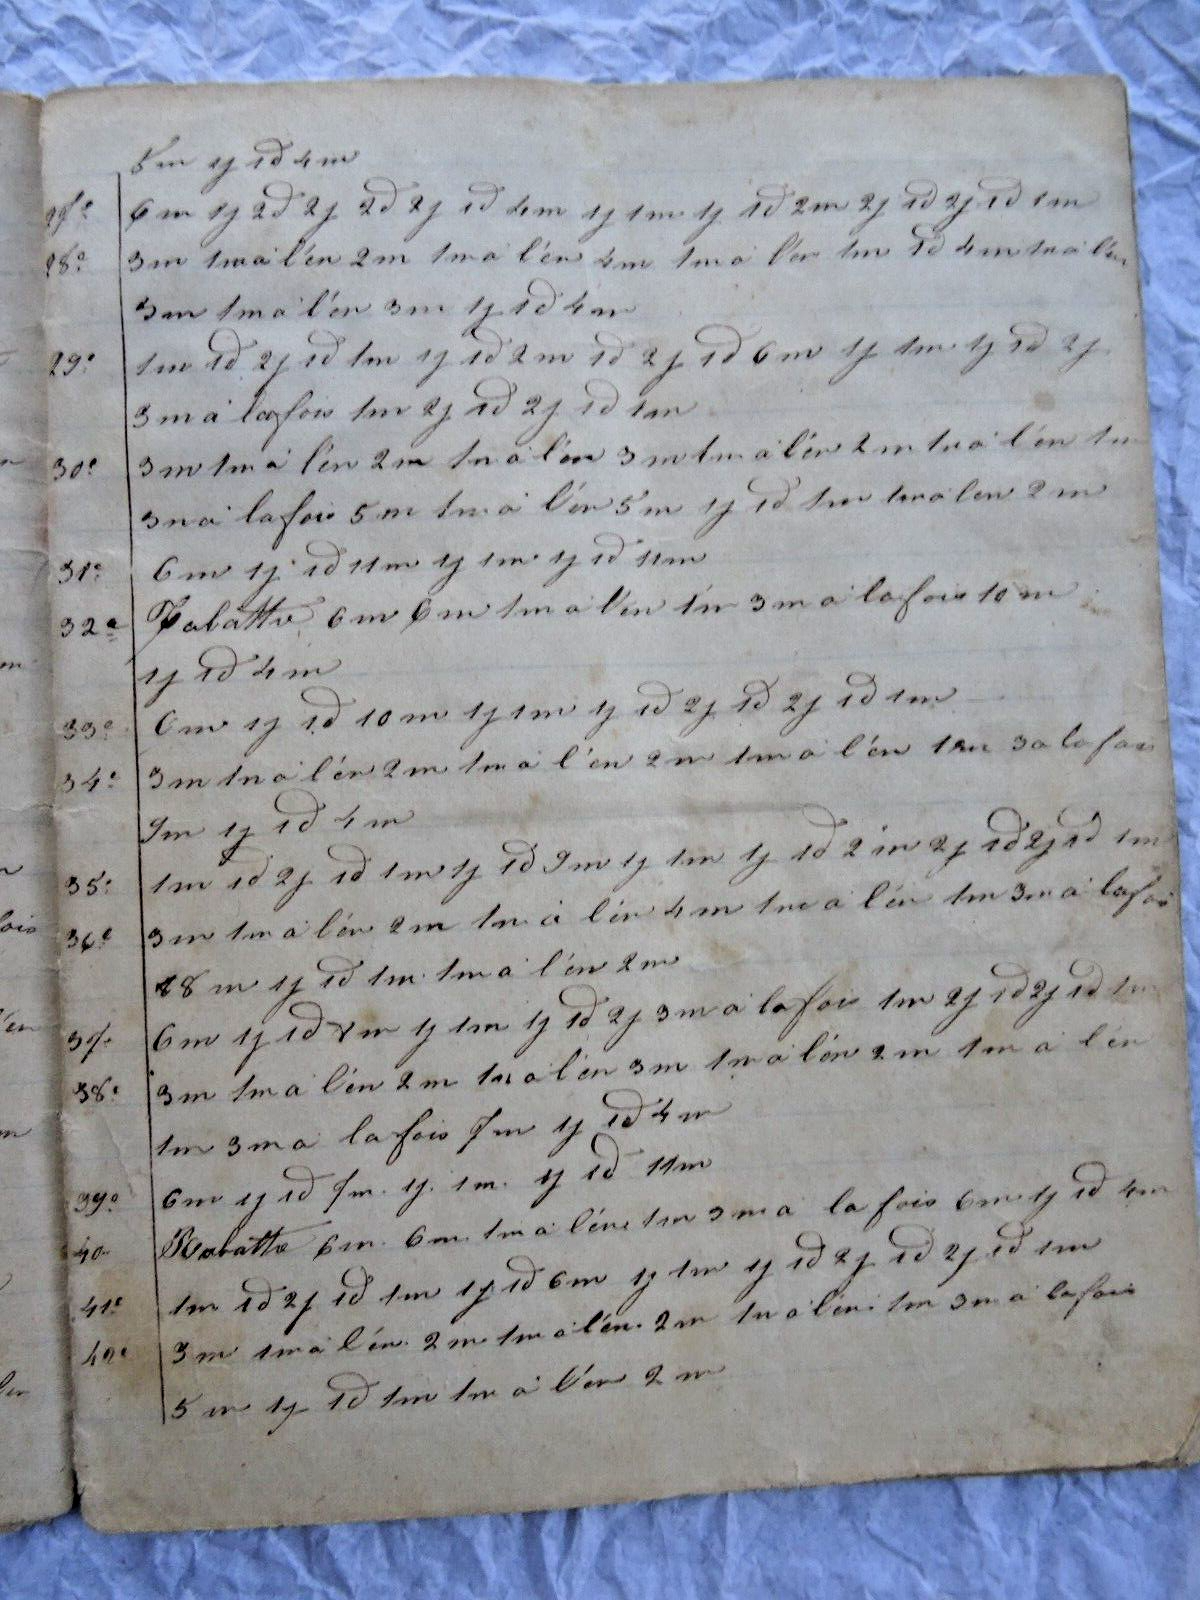 5m 1j 1d 4m
27e 6m 1j 2d 2j 2d 2j 1d 4m 1j 1m 1j 1d 2m 2j 1d 2j 1d 1m
28e 3m 1m à l'én 2m 1m à l'én 4m 1m à l'én 1m 1d 4m 1m à l'én
3m 1m à l'én 3m 1j 1d 4m
29e 1m 1d 2j 1d 1m 1j 1d 2m 1d 2j 1d 6m 1j 1m 1j 1d 2j
3m à la fois 1m 2j 1d 2j 1d 1m
30e 3m 1m à l'én 2m 1m à l'én 3m 1m à l'én 2m 1m à l'én 1m
3m à la fois 5m 1m à l'én 5m 1j 1d 1m 1m à l'en 2m
31e 6m 1j 1d 11m 1j 1m 1j 1d 11m
32e Rabattre 6m 6m 1m à l'én 1m 3m à la fois 10m
1j 1d 4m
33e 6m 1j 1d 10m 1j 1m 1j 1d 2j 1d 2j 1d 1m
34e 3m 1m à l'én 2m 1m à l'én 2m 1m à l'én 1m 3 a la fois
9m 1j 1d 4m
35e 1m 1d 2j 1d 1m 1j 1d 9m 1j 1m 1j 1d 2m 2j 1d 2j 1d 1m
36e 3m 1m à l'én 2m 1m à l'én 4m 1m à l'én 1m 3m à la fois
8m 1j 1d 1m 1m à l'én 2m
37e 6m 1j 1d 8m 1j 1m 1j 1d 2j 3m à la fois 1m 2j 1d 2j 1d 1m
38e 3m 1m à l'én 2m 1m à l'én 3m 1m à l'én 2m 1m à l'én
1m 3m a la fois 7m 1j 1d 4m
39e 6m 1j 1d 7m 1j 1m 1j 1d 11m
40 Rabattre 6m 6m 1m à l'én 1m 3m a la fois 6m 1j 1d 4m
41e 1m 1d 2j 1d 1m 1j 1d 6m 1j 1m 1j 1d 2j 1d 2j 1d 1m
42e 3m 1m à l'én 2m 1m à l'én 2m 1m à l'én 1m 3m à la fois
5m 1j 1d 1m 1m à l'én 2m